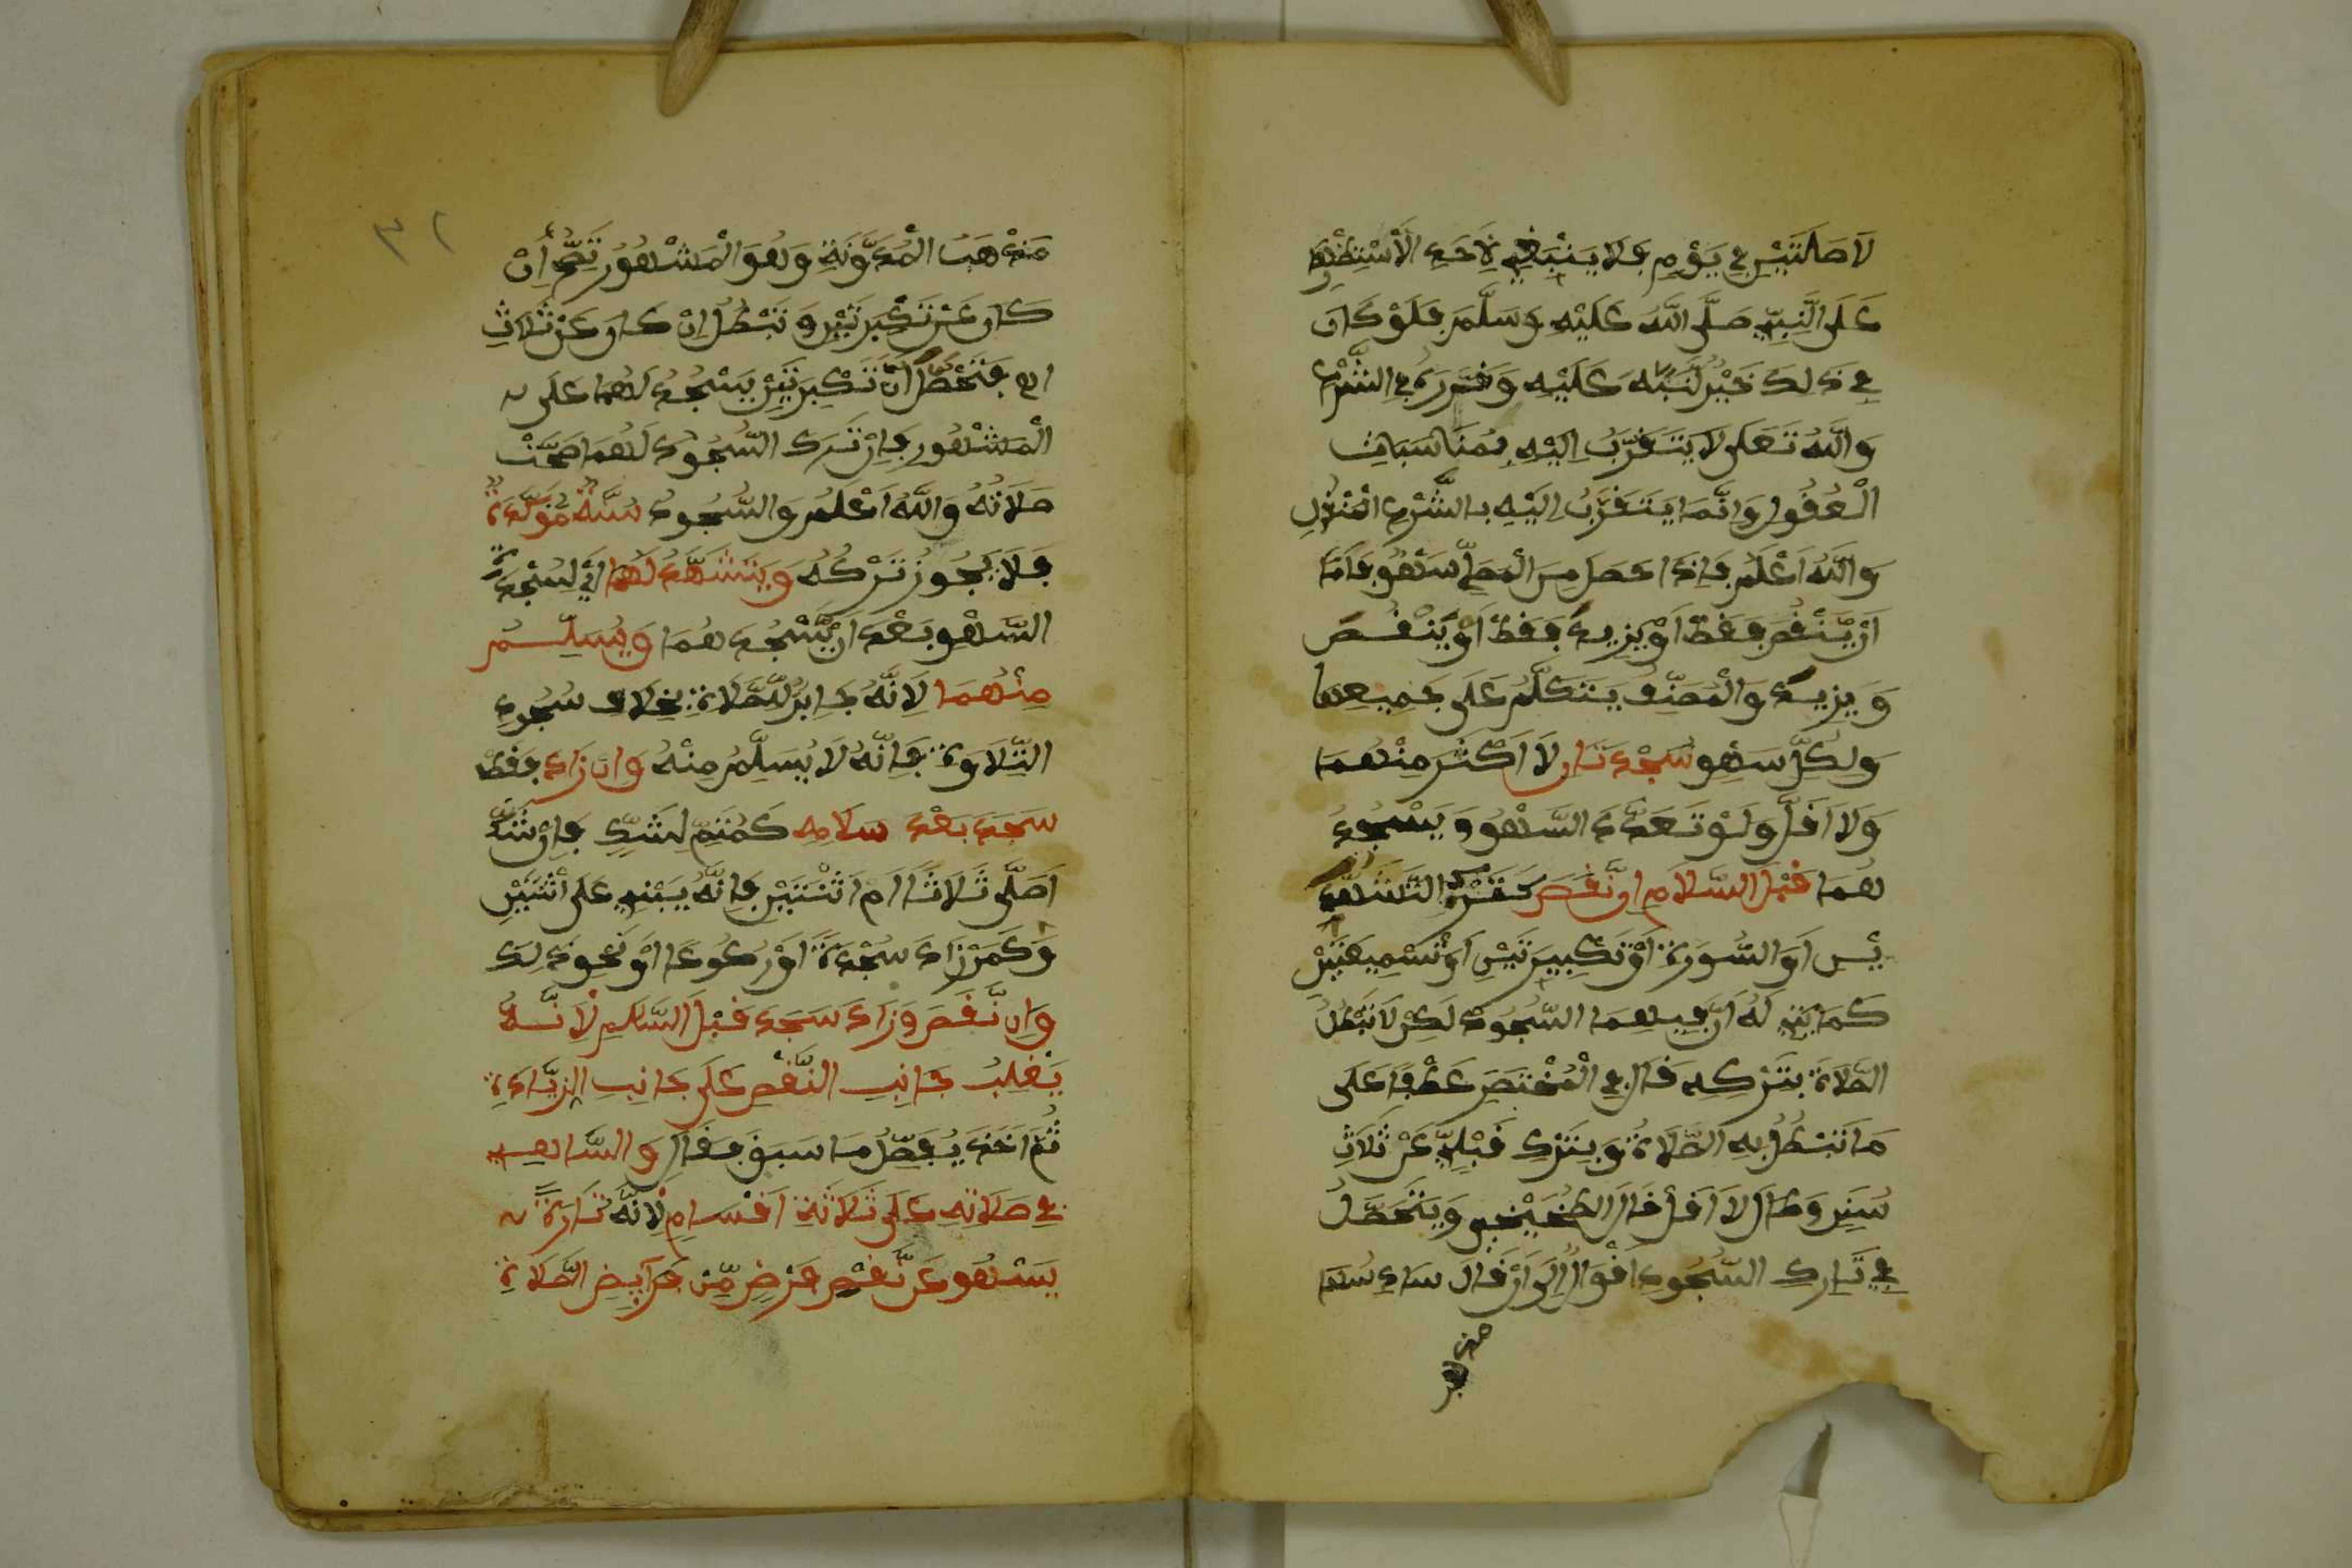 لَا صَلَاتَيْنِ فِي يَوْمٍ فَلَا يَنْبَغِي لِأَحَدٍ الْاسْتِظْهَارُ
عَلَى النَّبِيِّ صَلَّى اللَّهُ عَلَيْهِ وَسَلَّمَ فَلَوْ كَانَ
فِي ذَلِكَ خَيْرٌ لَنَبَّهَ عَلَيْهِ وَقَرَّرَهُ فِي الشَّرْعِ
وَاللَّهُ تَعَلَى لَا يُتَقَرَّبُ إِلَيْهِ بِمُنَاسَبَاتِ
الْعُقُولِ وَإِنَّمَا يُتَقَرَّبُ إِلَيْهِ بِالشَّرْعِ الْمَنْقُولِ
وَاللَّهُ أَعْلَمُ فَإِذَا حَصَلَ مِنَ الْمُصَلِّي سَهْوٌ فَإِمَّا
أَنْ يَّنْقُصَ فَقَطْ أَوْ يَزِيدَ فَقَطْ أَوْ يَنْقُصَ
وَيَزِيدَ وَالْمُصَنِّفُ يَتَكَلَّمُ عَلَى جَمِيعِهَا
وَلِكُلِّ سَهْوٍ سَجْدَتَانِ لَا أَكْثَرَ مِنْهُمَا
وَلَا أَقَلَّ وَلَوْ تَعَدَّدَ السَّهْوُ وَيَسْجُدُ
هُمَا قَبْلَ السَّلَامِ إِنْ نَّقَصَ كَتَرْكِ التَّشَهُّدَ
يْنِ أَوِ السُّورَةِ أَوْ تَكْبِيرَتَيْنِ أَوْ تَسْمِيعَتَيْنِ
كَمَا يَأْتِي لَهُ أَنَّ فِيهِمَا السُّجُودَ لَكِنْ لَا تَبْطُلُ
الصَّلَاةُ بِتَرْكِهِ قَالَ فِي الْمُخْتَصَرِ عَطْفًا عَلَى
مَا تَبْطُلُ بِهِ الصَّلَاةُ وَبِتَرْكِ قَبْلِيٍّ عَنْ ثَلَاثِ
سُنَنٍ وَطَالَ لَا أَقَلَّ قَالَ الطُّخَيْخِي وَيَتَحَصَّلُ
فِي تَارِكِ السُّجُودِ أَقْوَالٌ إِلَى أَنْ قَالَ
مَذْهَبُ الْمُدَوَّنَةِ وَهُوَ الْمَشْهُورُ تَصِحُّ إِنْ
كَانَ عَنْ تَكْبِيرَتَيْنِ وَتَبْطُلُ إِنْ كَانَ عَنْ ثَلَاثِ
اهـ فَتَحَصَّلَ أَنَّ تَكْبِيرَتَيْنِ يَسْجُدُ لَهُمَا عَلَى
الْمَشْهُورِ فَإِنْ تَرَكَ السُّجُودَ لَهُمَا صَحَّتْ
صَلَاتُهُ وَاللَّهُ أَعْلَمُ وَالسُّجُودُ سُنَّةٌ مُّؤَكَّدَةٌ
فَلَا يَجُوزُ تَرْكُهُ وَيَتَشَهَّدُ لَهُمَا أَيْ لِسَجْدَةِ
السَّهْوِ بَعْدَ أَنْ يَّسْجُدَ هُمَا وَيُسَلِّمُ
مِنْهُمَا لِأَنَّهُ جَابِرٌ لِلصَّلَاةِ بِخِلَافِ سُجُودِ
التِّلَاوَةِ فَإِنَّهُ لَا يُسَلِّمُ مِنْهُ وَإِنْ زَادَ فَقَطْ
سَجَدَ بَعْدَ سَلَامِهِ كَمُتِمٍّ لِشَكٍّ فَإِنْ شَكَّ
أَصَلَّى ثَلَاثًا أَمْ اثْنَتَيْنِ فَإِنَّهُ يَبْنِي عَلَى اثْنَتَيْنِ
وَكَمَنْ زَادَ سَجْدَةً أَوْ رُكُوعًا أَوْ نَحْوَ ذَلِكَ
وَإِنْ نَّقَصَ وَزَادَ سَجَدَ قَبْلَ السَّلَامِ لِأَنَّهُ
يَغْلِبُ جَانِبَ النَّقْصِ عَلَى جَانِبِ الزِّيَادَةِ
ثُمَّ أَخَذَ يُفَصِّلُ مَا سَبَقَ فَقَالَ وَالسَّاهِي
فِي صَلَاتِهِ عَلَى ثَلَاثَةِ أَقْسَامٍ لِأَنَّهُ تَارَةً
يَسْهُو عَنْ نَّقْصِ فَرْضٍ مِّنْ فَرَائِضِ الصَّلَاةِ